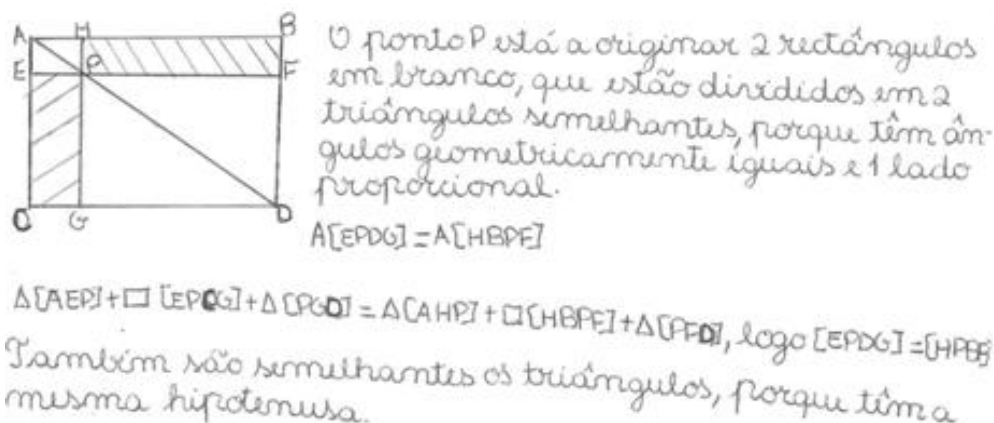 A H B
E P F
C G D
O ponto P está a originar 2 rectângulos
em branco, que estão divididos em 2
triângulos semelhantes, porque têm ân-
gulos geometricamente iguais e 1 lado
proporcional.
A[EPDG] = A[HBPF]
Δ[AEP]+□[EPCG]+Δ[PGD] = Δ[AHP]+□[HBPF]+Δ[PFD], logo [EPDG] = [HPBF]
Também são semelhantes os triângulos, porque têm a
mesma hipotenusa.